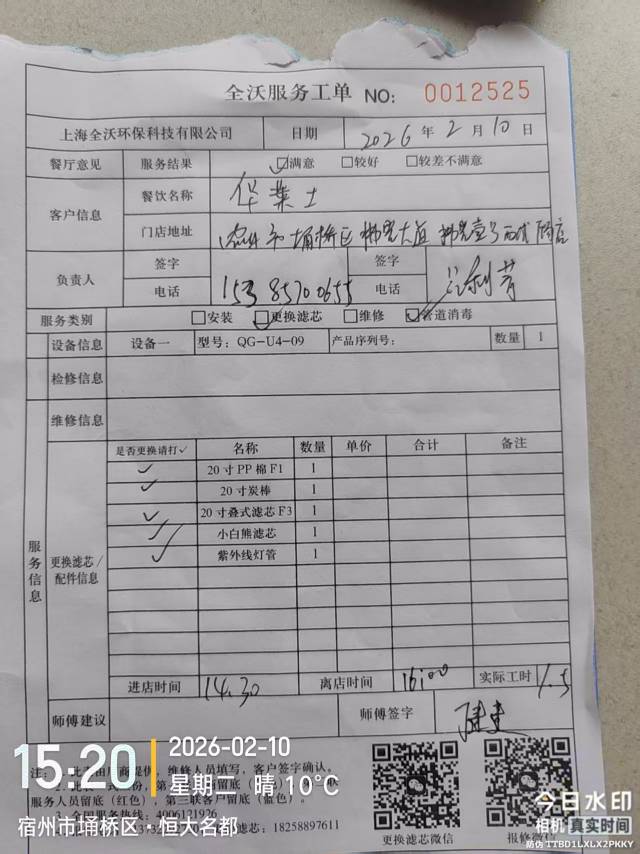 全沃服务工单 NO: 0012525
上海全沃环保科技有限公司 日期 2026年2月10日
餐厅意见 服务结果 ☑满意 □较好 □较差不满意
客户信息 餐饮名称 华莱士
门店地址 宿州市埇桥区
负责人 签字 签字
电话 15385700655 电话
服务类别 □安装 ☑更换滤芯 □维修 ☑管道消毒
设备信息 设备一 型号: QG-U4-09 产品序列号: 数量 1
检修信息
维修信息
服务信息
更换滤芯/配件信息
是否更换请打✓ 名称 数量 单价 合计 备注
✓ 20寸PP棉F1 1
✓ 20寸炭棒 1
✓ 20寸叠式滤芯F3 1
✓ 小白熊滤芯 1
✓ 紫外线灯管 1
进店时间 14.30 离店时间 16:00 实际工时 1.5
师傅建议 师傅签字
注: 维修人员填写,客户签字确认。
服务人员留底(红色),第三联客户留底(蓝色)。
全国服务热线: 4006121926
18258897611
更换滤芯微信 报修微信
15:20 2026-02-10
星期二 晴 10℃
宿州市埇桥区·恒大名都
今日水印
相机 真实时间
防伪 TTBD1LXLX2PKKY